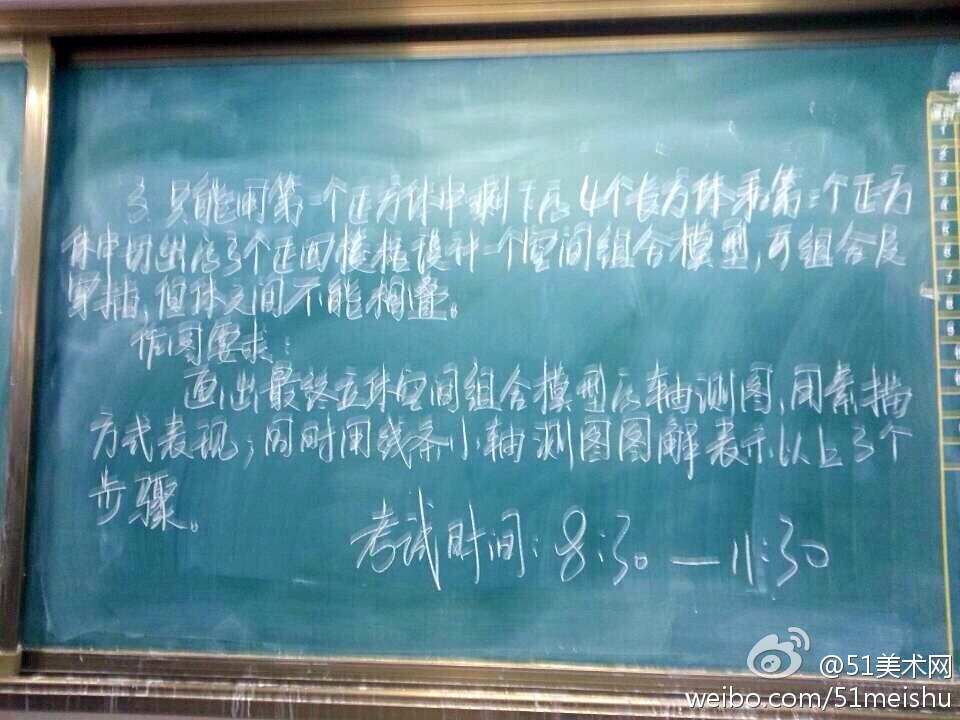 3. 只能用第一个正方体中剩下的4个长方体和第二个正方
体中切出的3个正四棱柱设计一个空间组合模型,可组合及
穿插,但体之间不能相叠。
作图要求:
画出最终立体空间组合模型的轴测图,用素描
方式表现;同时用线条小轴测图图解表示以上3个
步骤。
考试时间:8:30—11:30
@51美术网
weibo.com/51meishu